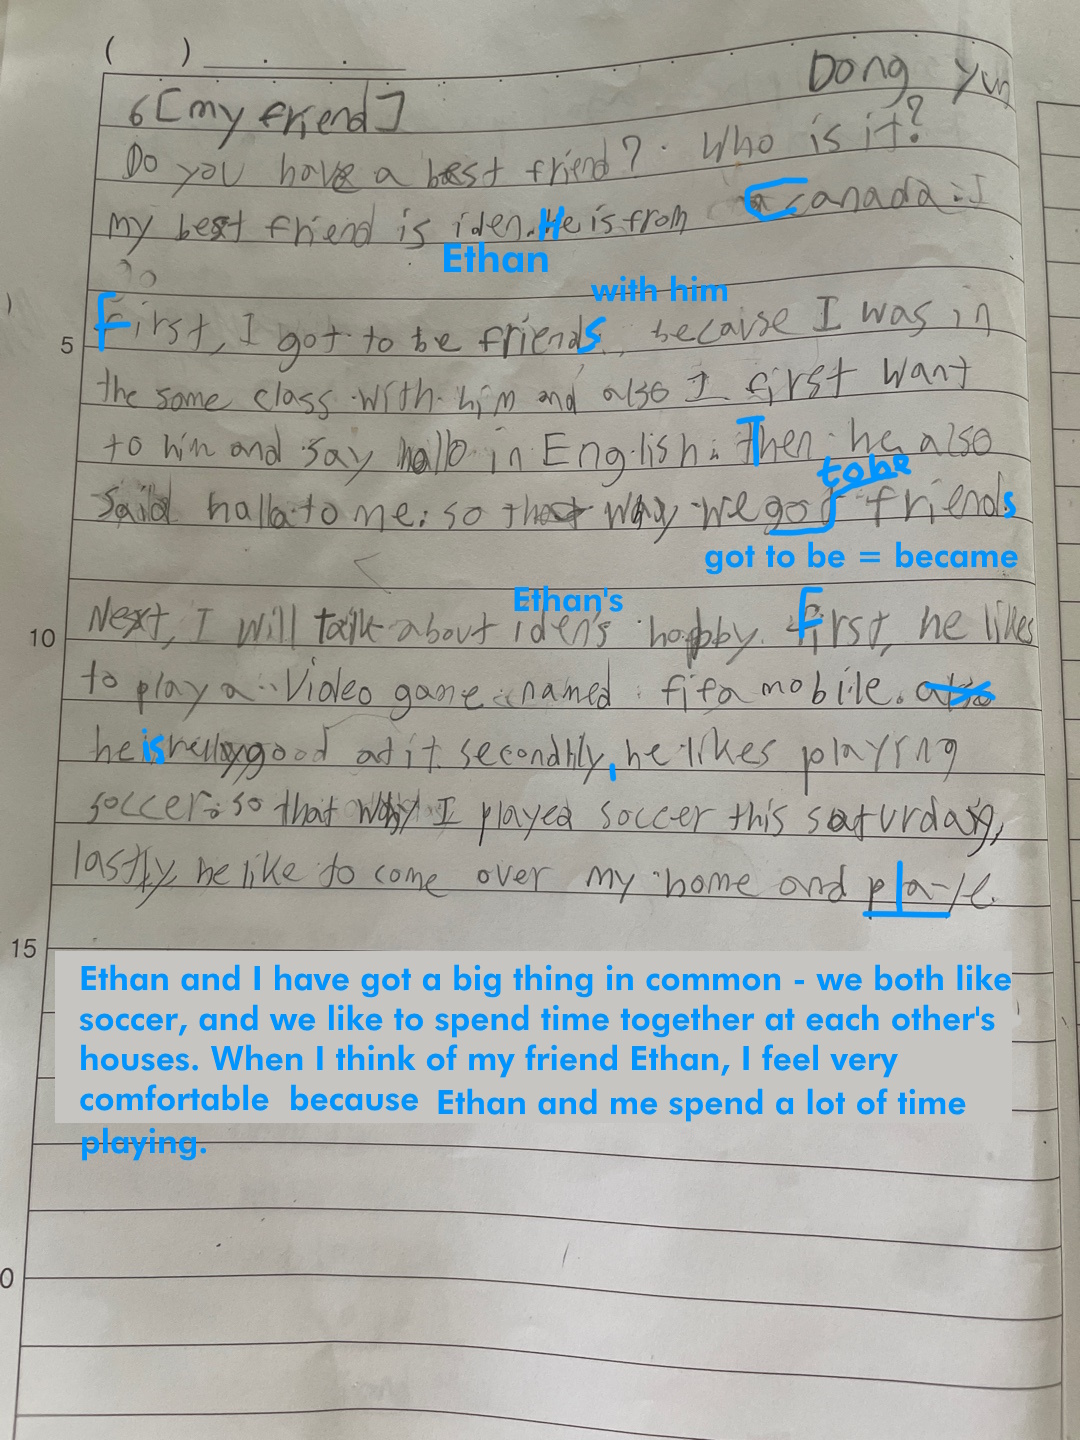 ( )
Dong Yun
6 [my friend]
Do you have a best friend? Who is it?
my best friend is iden. He is from Canada. I
Ethan
with him
First, I got to be friends, because I was in
5
the same class with him and also I first want
to him and say hallo in English. Then he also
to be
said hallo to me. so that way we got friends
got to be = became
Ethan's
Next, I will talk about iden's hobby. First, he likes
10
to play a video game named fifa mobile. also
he is really good at it secondly, he likes playing
soccer. so that way I played soccer this saturday,
lastly, he like to come over my home and play
15
Ethan and I have got a big thing in common - we both like
soccer, and we like to spend time together at each other's
houses. When I think of my friend Ethan, I feel very
comfortable because Ethan and me spend a lot of time
playing.
0